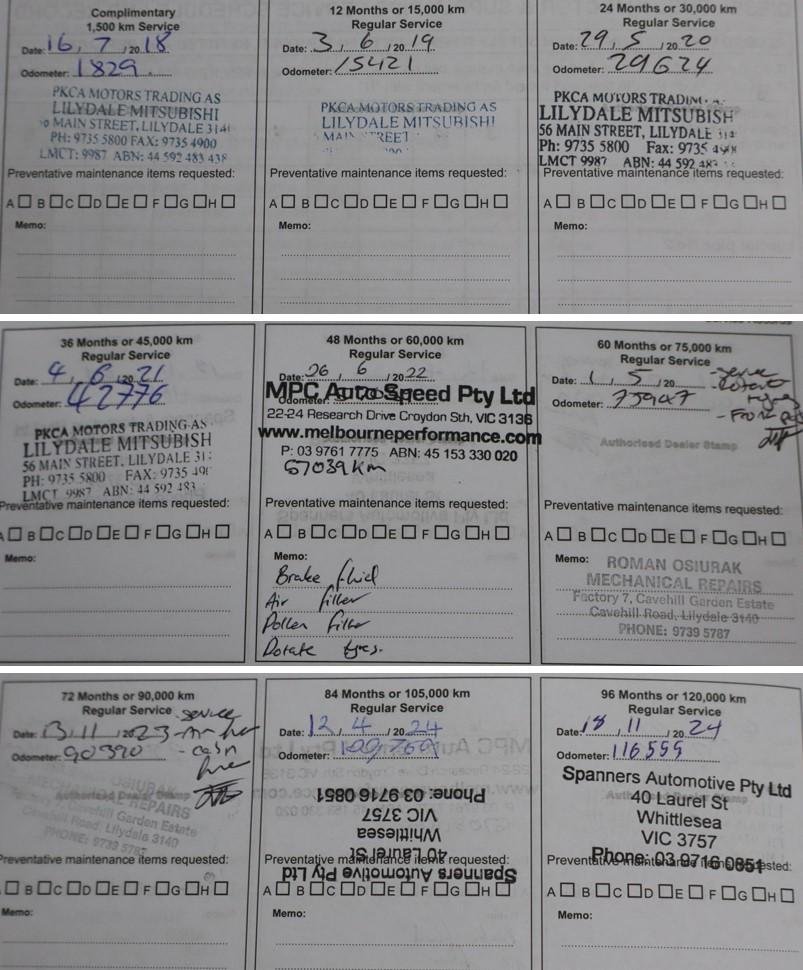 Complimentary
1,500 km Service
Date: 16 / 7 / 20 18
Odometer: 1829
PKCA MOTORS TRADING AS
LILYDALE MITSUBISHI
MAIN STREET, LILYDALE 3140
PH: 9735 5800 FAX: 9735 4900
LMCT: 9987 ABN: 44 592 483 438
Preventative maintenance items requested:
A B C D E F G H
Memo:
12 Months or 15,000 km
Regular Service
Date: 3 / 6 / 20 19
Odometer: 15421
PKCA MOTORS TRADING AS
LILYDALE MITSUBISHI
MAIN STREET
Preventative maintenance items requested:
A B C D E F G H
Memo:
24 Months or 30,000 km
Regular Service
Date: 29 / 5 / 20 20
Odometer: 29624
PKCA MOTORS TRADING
LILYDALE MITSUBISH
56 MAIN STREET, LILYDALE
Ph: 9735 5800 Fax: 9735
LMCT 9987 ABN: 44 592 483
Preventative maintenance items requested:
A B C D E F G H
Memo:
36 Months or 45,000 km
Regular Service
Date: 4 / 6 / 20 21
Odometer: 42776
PKCA MOTORS TRADING AS
LILYDALE MITSUBISH
56 MAIN STREET, LILYDALE
PH: 9735 5800 FAX: 9735
LMCT 9987 ABN: 44 592 483
Preventative maintenance items requested:
A B C D E F G H
Memo:
48 Months or 60,000 km
Regular Service
Date: 26 / 6 / 20 22
Odometer:
MPC Auto Speed Pty Ltd
22-24 Research Drive Croydon Sth, VIC 3136
www.melbourneperformance.com
P: 03 9761 7775 ABN: 45 153 330 020
67039 km
Preventative maintenance items requested:
A B C D E F G H
Memo:
Brake fluid
Air filter
Pollen filter
Rotate tyres.
60 Months or 75,000 km
Regular Service
Date: 1 / 5 / 20
Odometer: 75947
- Service
- Rotate
- Front
Authorised Dealer Stamp
Preventative maintenance items requested:
A B C D E F G H
Memo:
ROMAN OSIURAK
MECHANICAL REPAIRS
Factory 7, Cavehill Garden Estate
Cavehill Road, Lilydale 3140
PHONE: 9739 5787
72 Months or 90,000 km
Regular Service
Date: 13 / 11 / 20 23
Odometer: 90390
- service
- Air
- cabin
Authorised Dealer Stamp
OSIURAK
MECHANICAL REPAIRS
Cavehill Garden Estate
Cavehill Road, Lilydale 3140
PHONE: 9739 5787
Preventative maintenance items requested:
A B C D E F G H
Memo:
84 Months or 105,000 km
Regular Service
Date: 12 / 4 / 20 24
Odometer:
Spanners Automotive Pty Ltd
40 Laurel St
Whittlesea
VIC 3757
Phone: 03 9716 0851
Preventative maintenance items requested:
A B C D E F G H
Memo:
96 Months or 120,000 km
Regular Service
Date: 18 / 11 / 20 24
Odometer: 116559
Spanners Automotive Pty Ltd
40 Laurel St
Whittlesea
VIC 3757
Phone: 03 9716 0851
Preventative maintenance items requested:
A B C D E F G H
Memo: